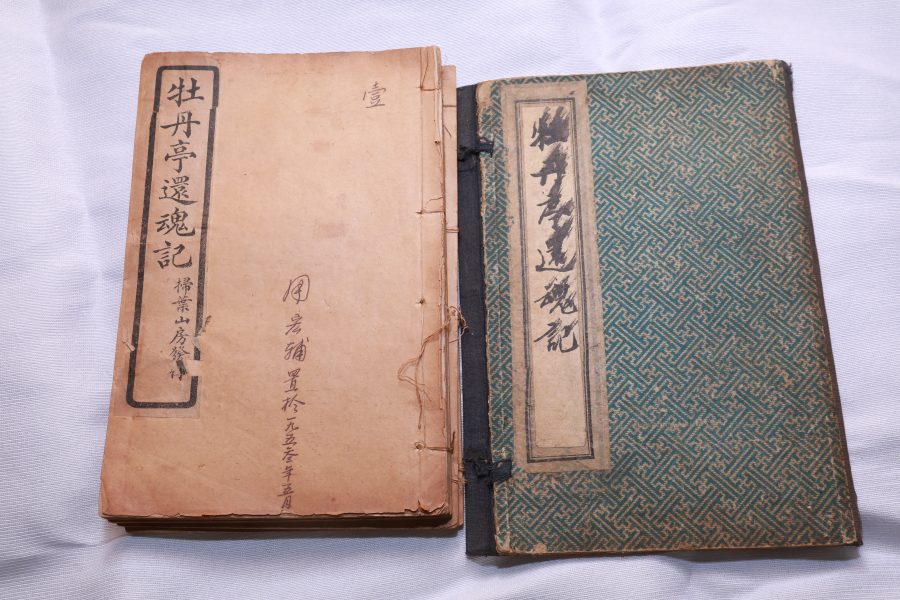 牡丹亭還魂記
掃葉山房發行
壹
周宏輔置於一九五叁年五月
牡丹亭還魂記